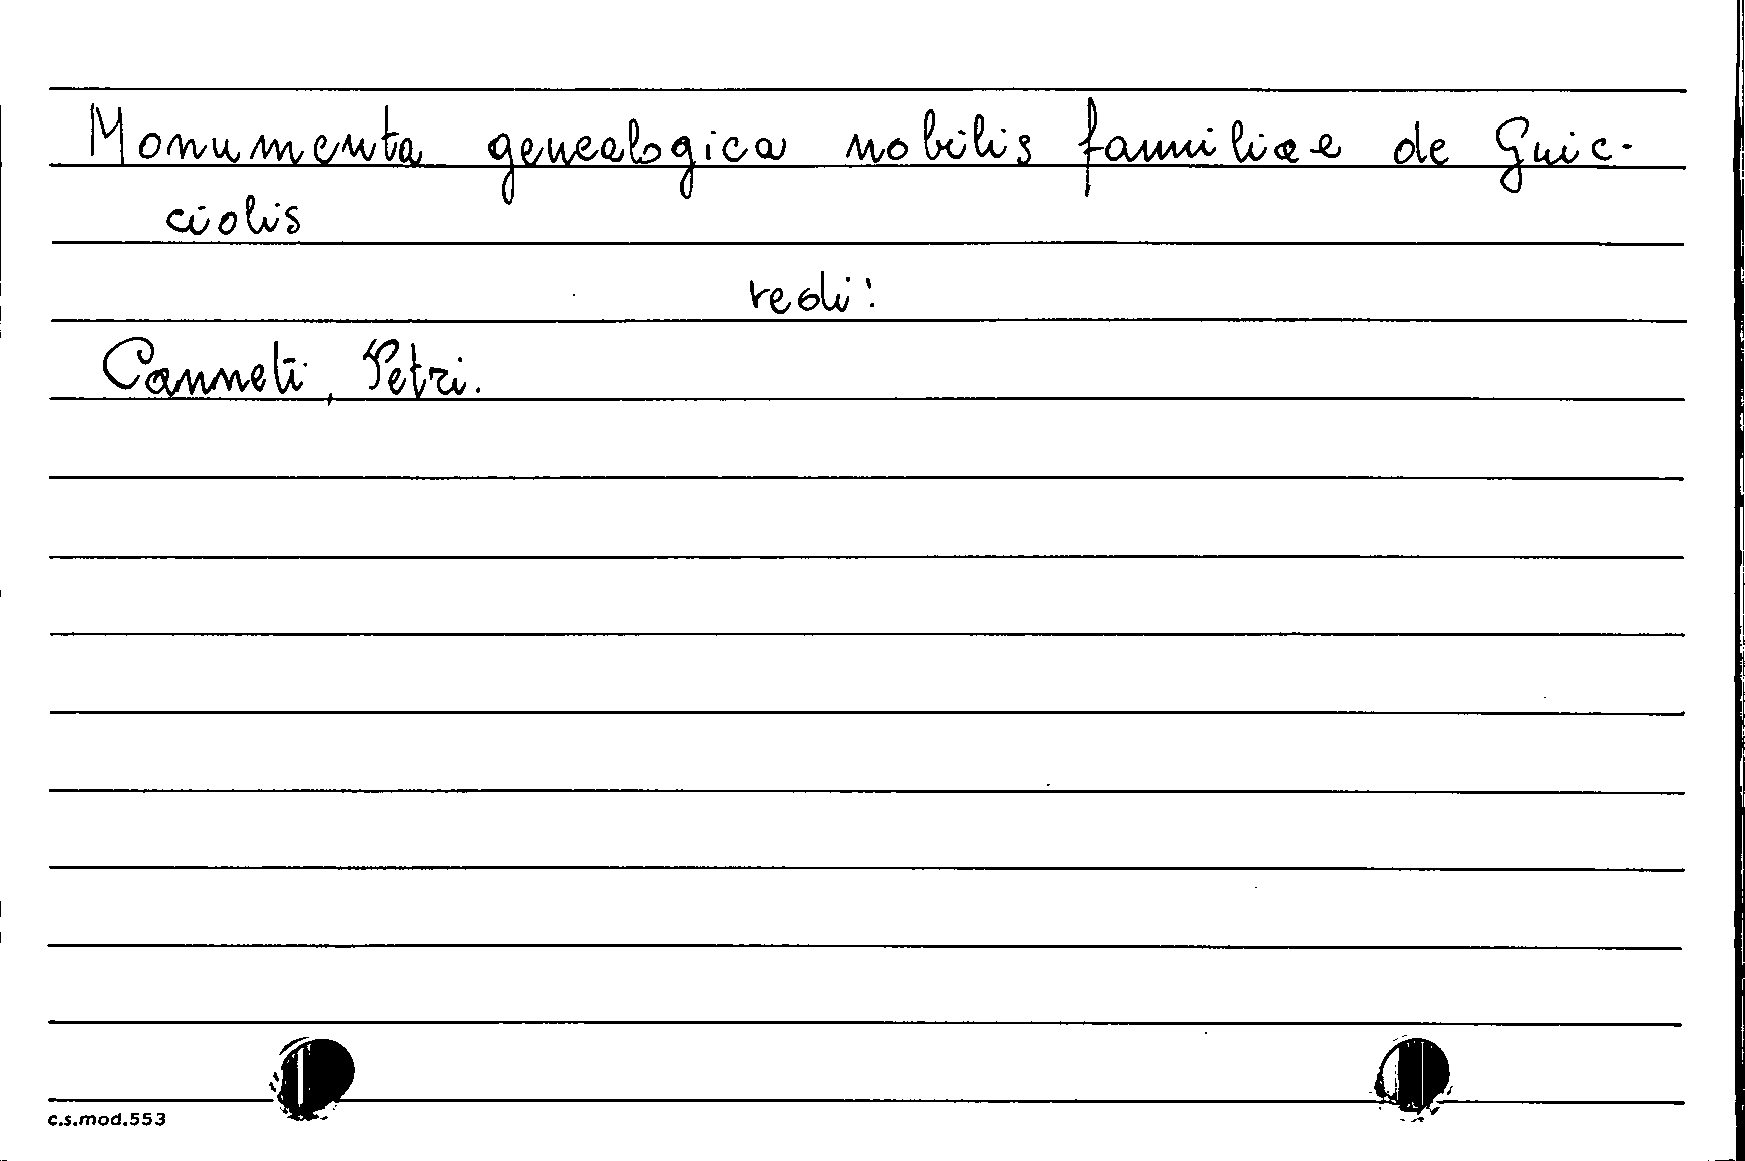 Monumenta genealogica nobilis familiae de Guic-
ciolis
vedi:
Canneti, Petri.
c.s.mod.553